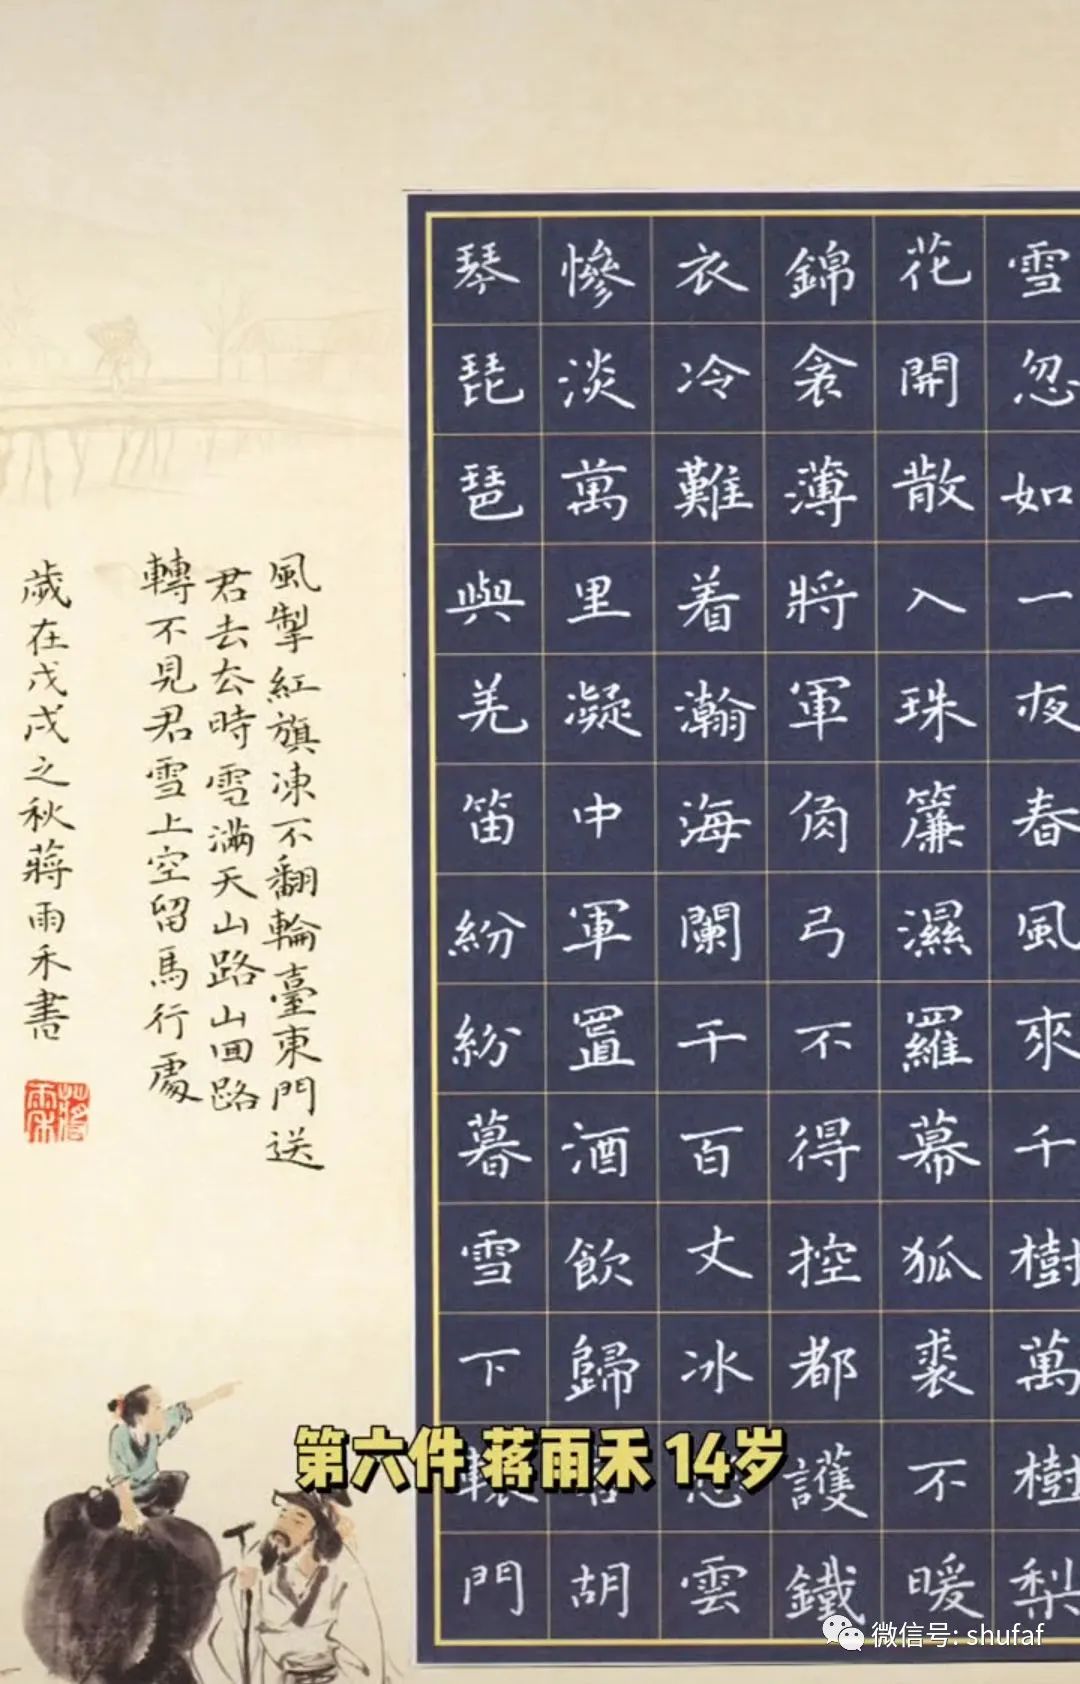 雪忽如一夜春風來千樹萬樹梨
花開散入珠簾濕羅幕狐裘不暖
錦衾薄將軍角弓不得控都護鐵
衣冷難着瀚海闌干百丈冰雲
慘淡萬里凝中軍置酒飲歸胡
琴琵琶與羌笛紛紛暮雪下轅門
風掣紅旗凍不翻輪臺東門送
君去去時雪滿天山路山囬路
轉不見君雪上空留馬行處
歲在戊戌之秋蔣雨禾書
蔣雨禾
第六件 蒋雨禾 14岁
微信号: shufaf